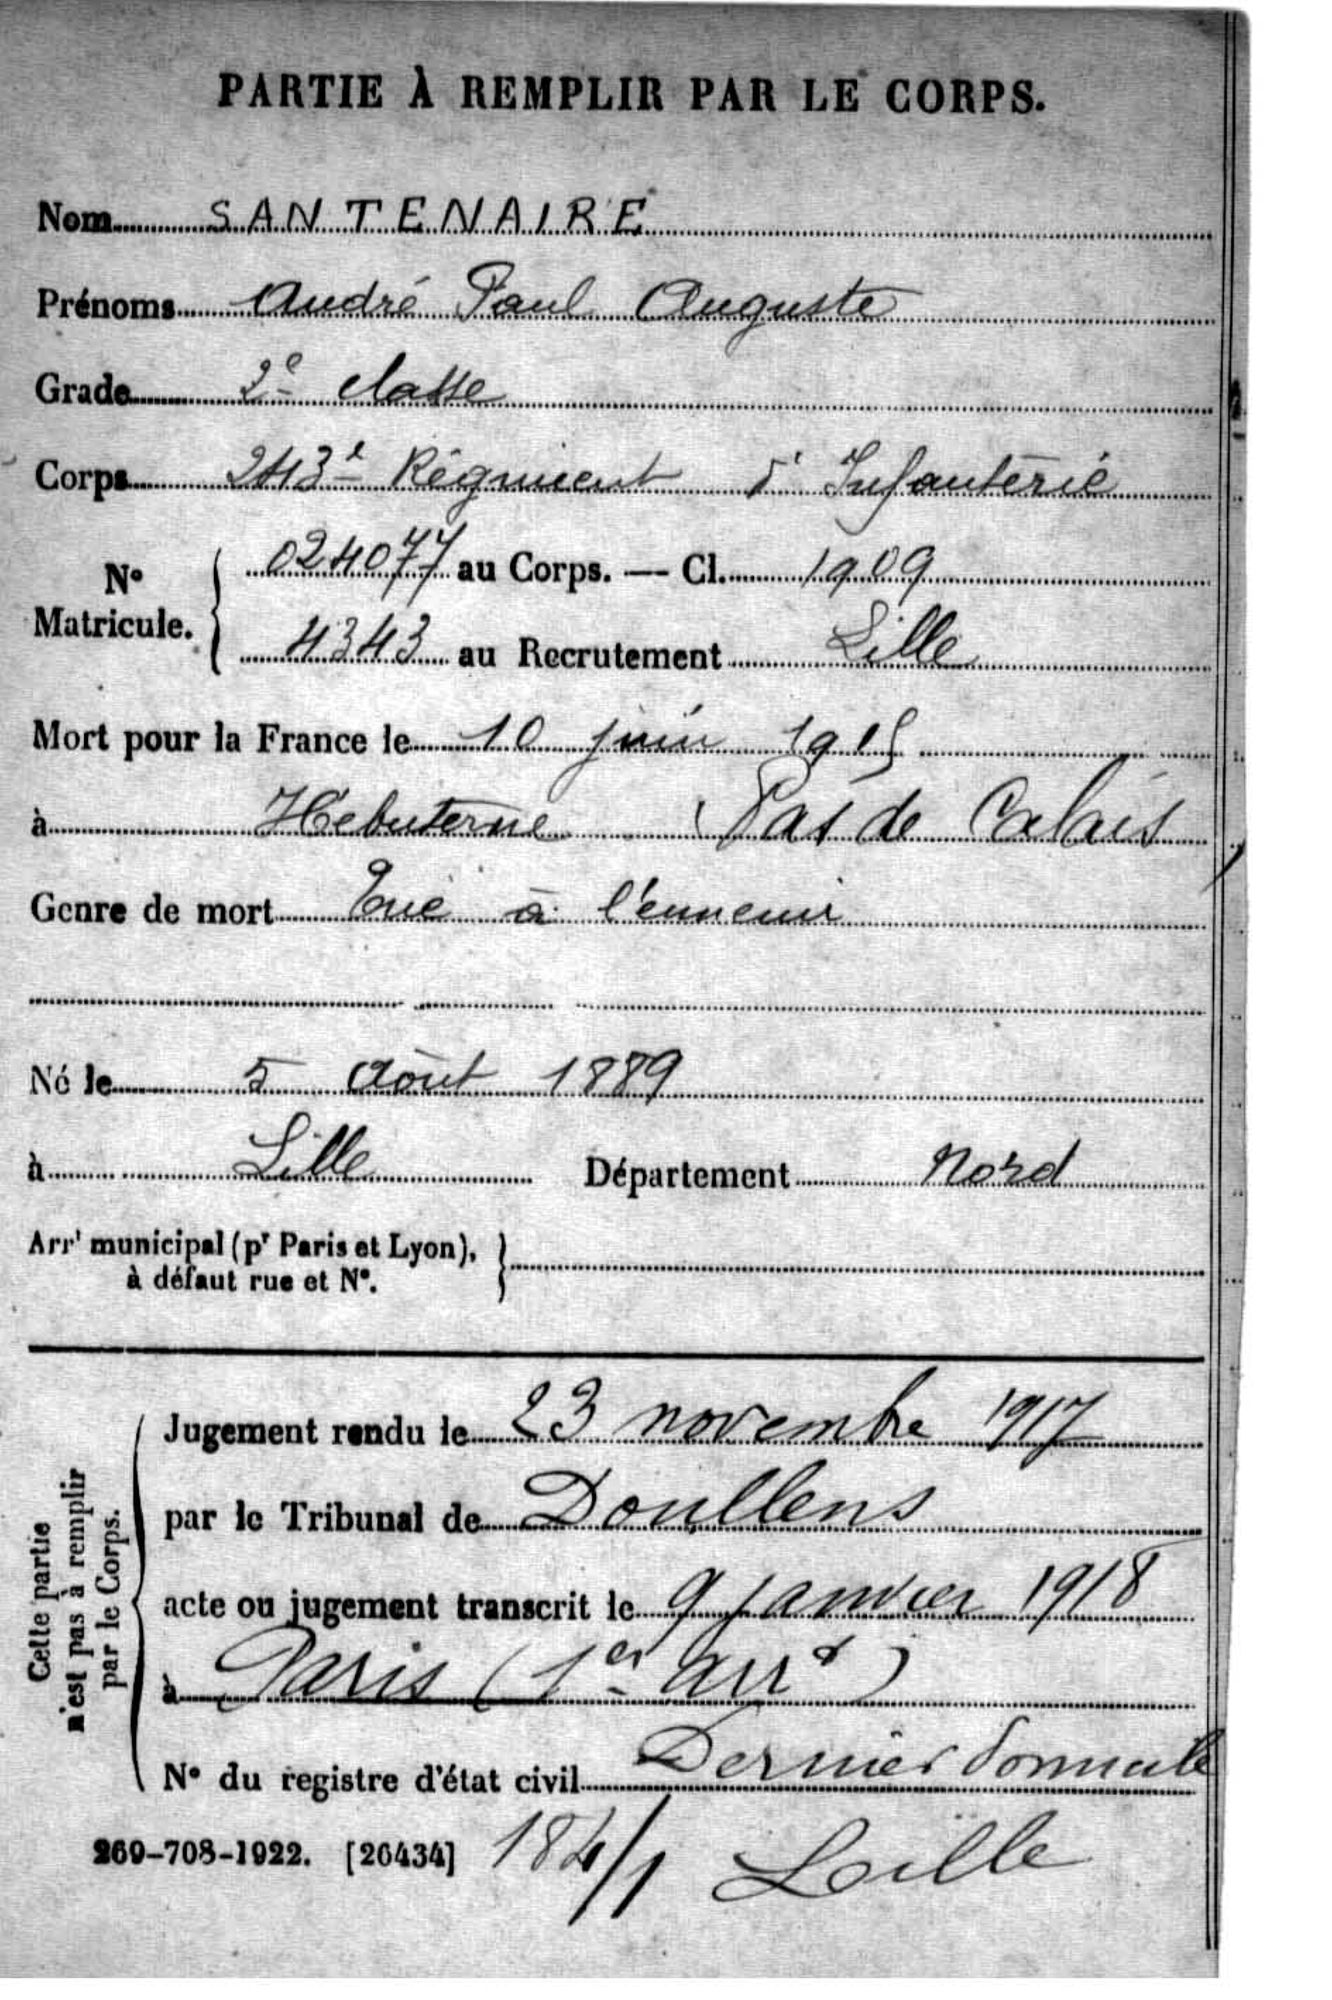 PARTIE À REMPLIR PAR LE CORPS.
Nom SANTENAIRE
Prénoms André Paul Auguste
Grade 2e classe
Corps 243e Régiment d'Infanterie
No Matricule. 024077 au Corps. — Cl. 1909
4343 au Recrutement Lille
Mort pour la France le 10 juin 1915
à Hébuterne (Pas de Calais)
Genre de mort Tué à l'ennemi
Né le 5 Août 1889
à Lille Département Nord
Arrt municipal (pr Paris et Lyon),
à défaut rue et No.
Cette partie
n'est pas à remplir
par le Corps.
Jugement rendu le 23 novembre 1917
par le Tribunal de Doullens
acte ou jugement transcrit le 9 janvier 1918
à Paris (1er arrt)
No du registre d'état civil Dernier domicile
269-708-1922. [26434] 184/1 Lille